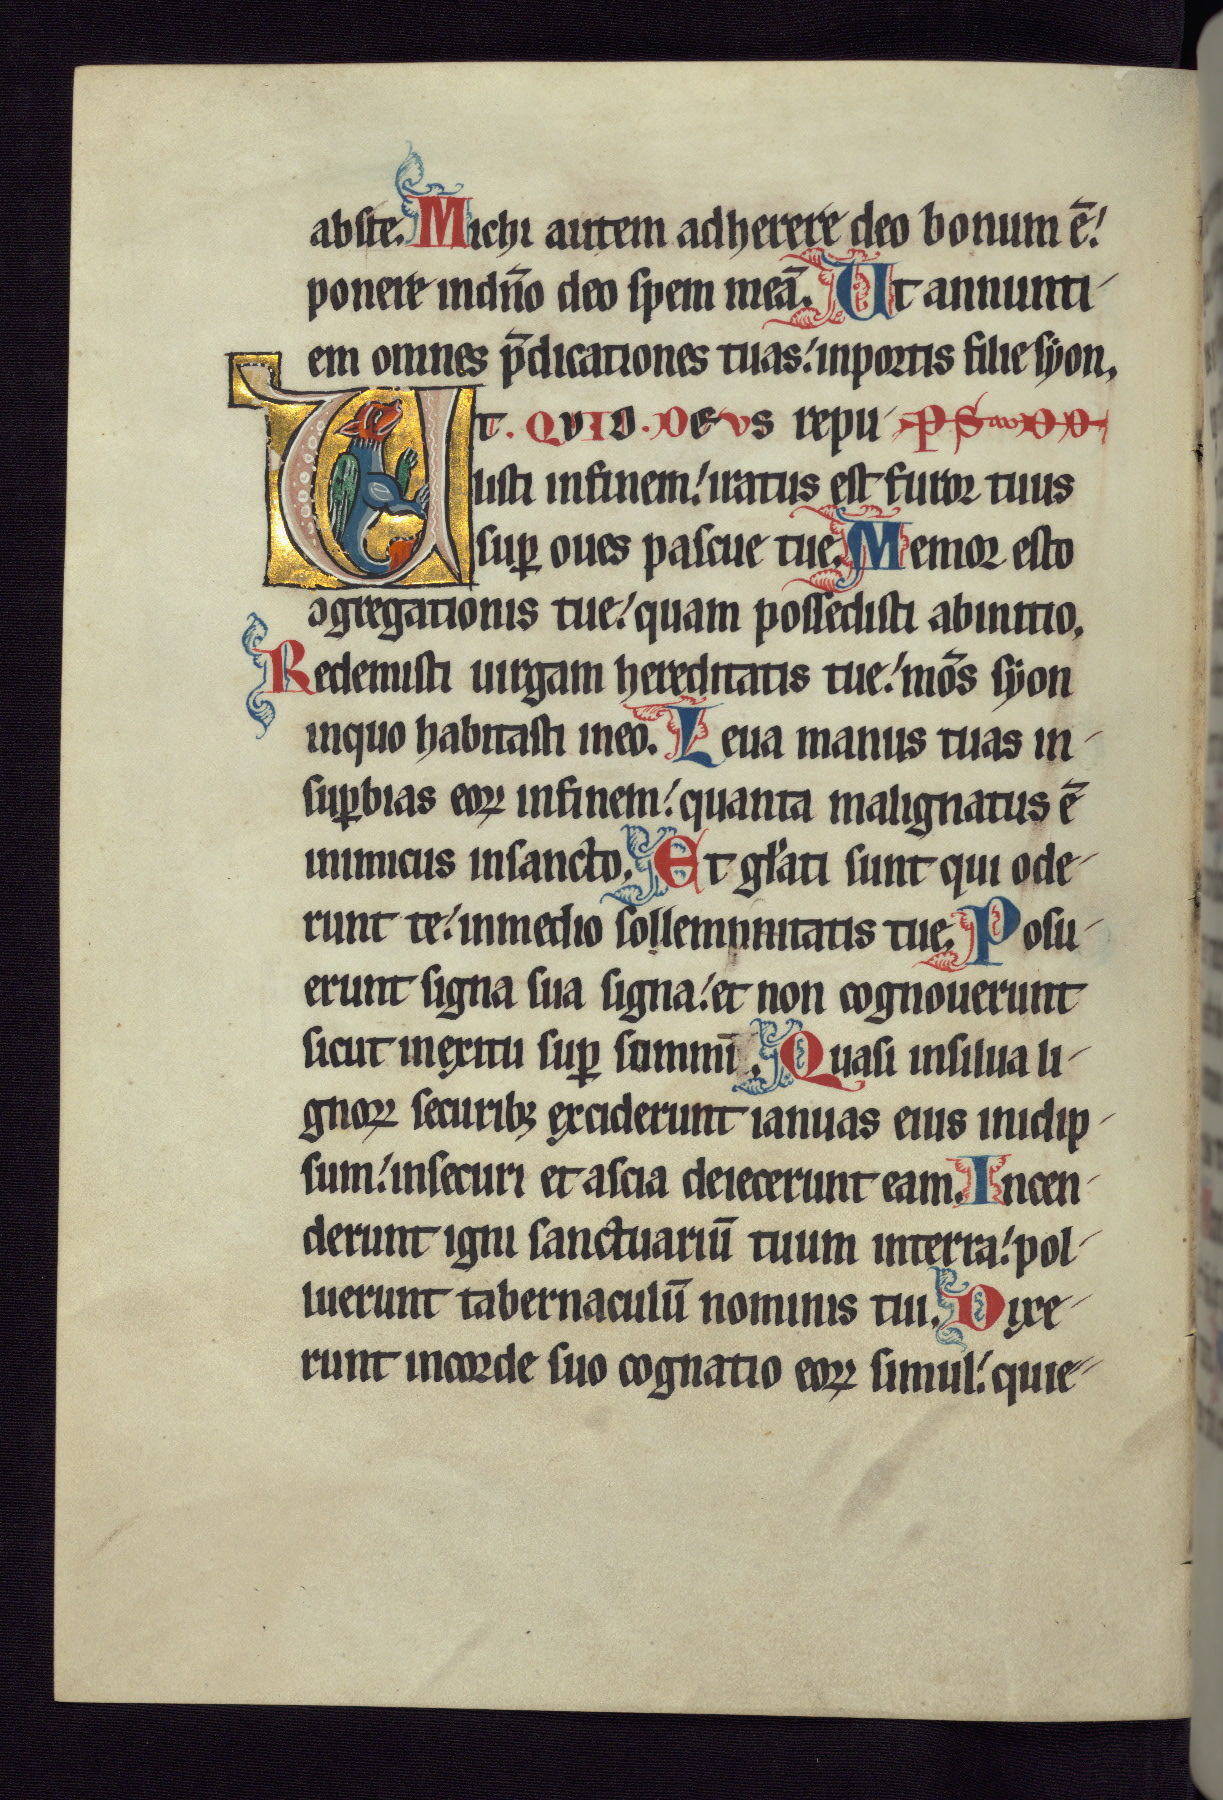 abste. Michi autem adherere deo bonum ē:
ponere indn̄o deo spem meā. Ut annunti-
em omnes p̄dicationes tuas: inportis filie syon.
Ut. QVID. DEVS repu-
listi infinem: iratus est furor tuus
suꝑ oues pascue tue. Memor esto
ɔgregationis tue: quam possedisti abinitio.
Redemisti uirgam hereditatis tue: mōs syon
inquo habitasti ineo. Leua manus tuas in-
suꝑbias eoꝝ infinem: quanta malignatus ē
inimicus insancto. Et gl̄ati sunt qui ode-
runt te: inmedio sollempnitatis tue. Posu-
erunt signa sua signa: et non cognouerunt
sicut inexitu suꝑ summū. Quasi insilua li-
gnoꝝ securibꝫ exciderunt ianuas eius inidip-
sum: insecuri et ascia deiecerunt eam. Incen-
derunt igni sanctuariū tuum interra: pol-
luerunt tabernaculū nominis tui. Dixe-
runt incorde suo cognatio eoꝝ simul: quie-